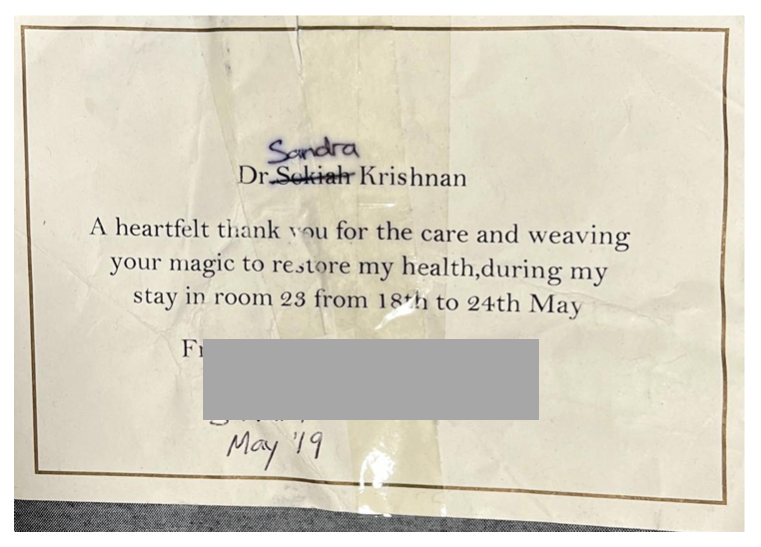 Sandra
Dr. Sokiah Krishnan
A heartfelt thank you for the care and weaving
your magic to restore my health,during my
stay in room 23 from 18th to 24th May
May '19